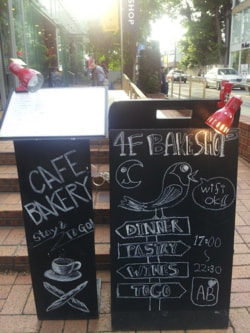 SHOP
CAFE
BAKERY
stay & TOGO!
4F BAKESHOP
wifi
ok!!
DINNER
PASTRY
WINES
TOGO
17:00
~
22:30
AB